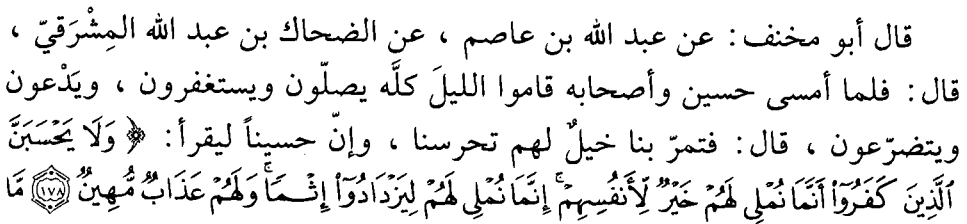 قال أبو مخنف : عن عبد الله بن عاصم ، عن الضحاك بن عبد الله المِشْرَقيّ ،
قال : فلما أمسى حسين وأصحابه قاموا الليلَ كلَّه يصلّون ويستغفرون ، ويَدْعون
ويتضرّعون ، قال : فتمرّ بنا خيلٌ لهم تحرسنا ، وإنّ حسيناً ليقرأ : ﴿ وَلَا يَحْسَبَنَّ
ٱلَّذِينَ كَفَرُوٓا۟ أَنَّمَا نُمْلِى لَهُمْ خَيْرٌ لِّأَنفُسِهِمْ ۚ إِنَّمَا نُمْلِى لَهُمْ لِيَزْدَادُوٓا۟ إِثْمًا ۚ وَلَهُمْ عَذَابٌ مُّهِينٌ ۝١٧٨ مَّا